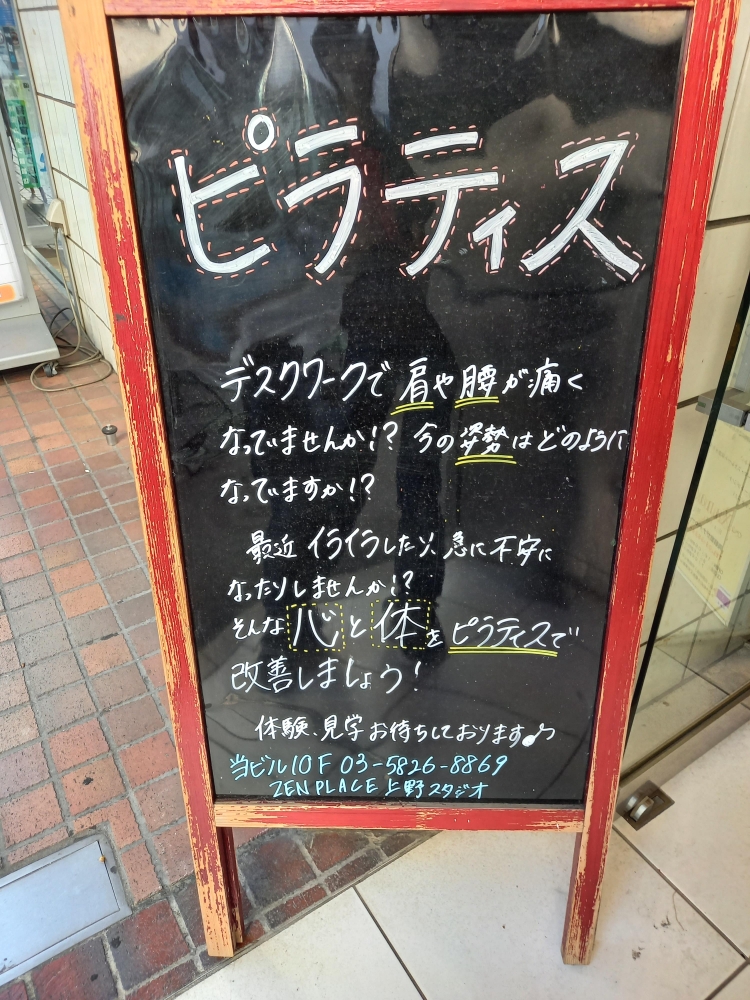 ピラティス
デスクワークで肩や腰が痛く
なっていませんか!? 今の姿勢はどのように
なっていますか!?
最近イライラしたり、急に不安に
なったりしませんか!?
そんな心と体をピラティスで
改善しましょう!
体験、見学お待ちしております♪
当ビル10F 03-5826-8869
ZEN PLACE 上野スタジオ